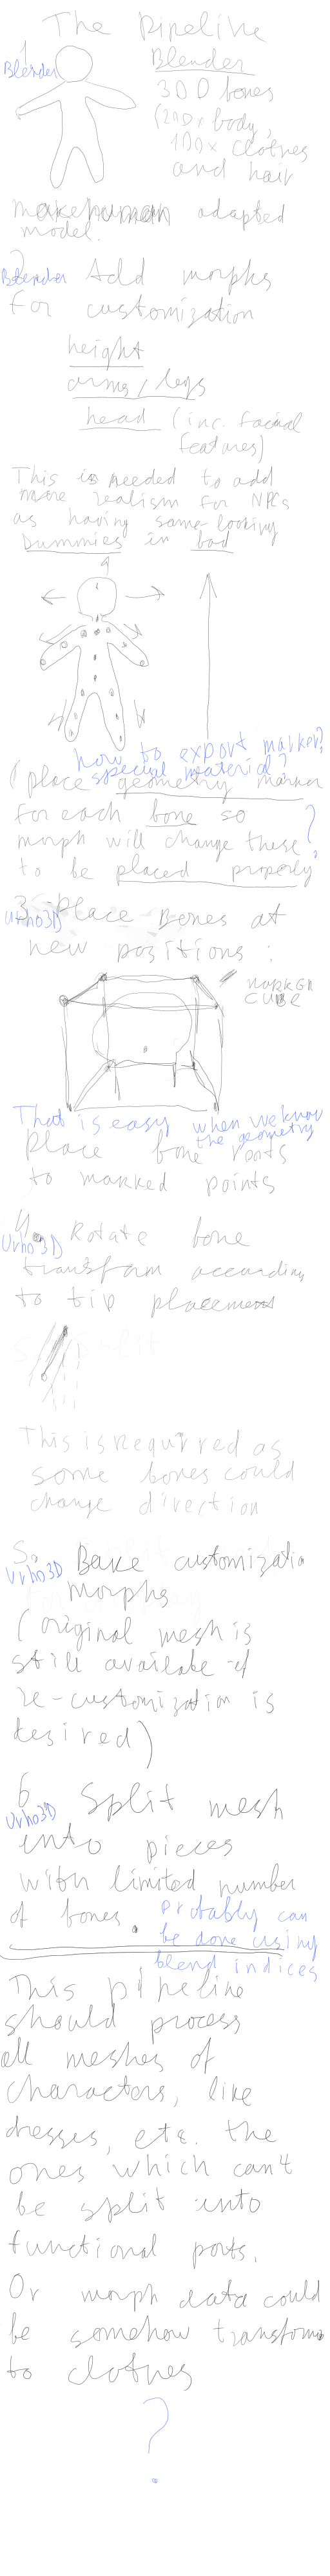 The Pipeline
1
Blender
Blender
300 bones
(200x body,
100x clothes
and hair
makehuman adapted
model.
2
Blender Add morphs
for customization
height
arms/legs
head (inc. facial
features)
This is needed to add
more realism for NPCs
as having same-looking
dummies is bad
how to export marker?
special material?
(place geometry marker
for each bone so
morph will change these
to be placed properly
?
3 Place Bones at
Urho3D
new positions:
MARKER
CUBE
That is easy when we know
the geometry
Place bone roots
to marked points
4. Rotate bone
Urho3D
transform according
to tip placement
5 split
This is required as
some bones could
change direction
5. Bake customization
Urho3D
morphs
(original mesh is
still available if
re-customization is
desired)
6 Split mesh
Urho3D
into pieces
with limited number
of bones.
Probably can
be done using
blend indices
This pipeline
should process
all meshes of
characters, like
dresses, etc. the
ones which can't
be split into
functional parts.
Or morph data could
be somehow transform
to clothes
?